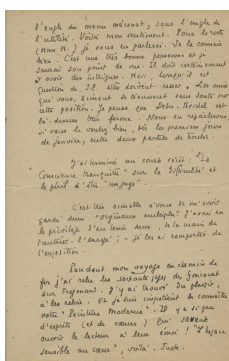 l'angle du menu mécénat, sous l'angle de
l'utilité. Voilà mon sentiment. Pour le reste
(Mme M.) je vous en parlerai. Je la connais
bien. C'est une très bonne personne et je
saurai son point de vue. Il doit certainement
y avoir des intrigues. Mais, lorsqu'il est
question de J.P. elles doivent cesser. Les amis
qui vous aiment se trouvent sans doute sur
cette position. Je pense que
là-dessus très ferme. Nous en reparlerons,
si vous le voulez bien, dès les premiers jours
de janvier, entre deux parties de
J'ai terminé un court écrit : "La
Conscience tranquille" sur la
et le péril d'être "
C'est très aimable à vous de m'avoir
gardé deux "originaux multiples". J'avais eu
le privilège d'en tenir deux, de la main de
l'auteur. ; je les ai remportés de
l'exposition.
Pendant mon voyage en chemin de
fer j'ai relu les soixante pages de Goncourt
sur Fragonard. J'y ai trouvé du plaisir,
à les relire. Et je suis impatient de connaître
votre "Peinture Moderne". Il y a si peu
d'esprits (et de cœurs) qui savent
ouvrir le lecteur à leur envoi ! "L'espace
sensible au cœur", voilà. Juste.